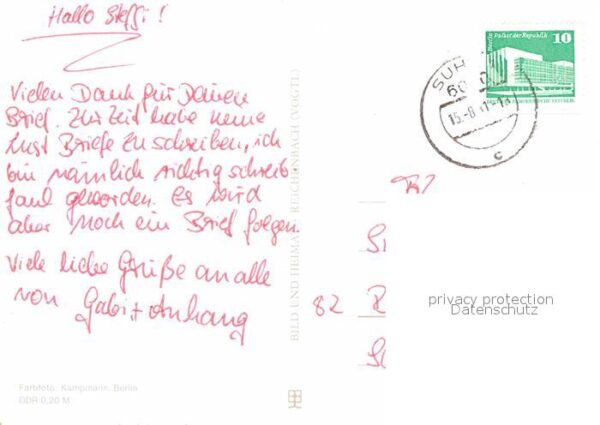 Hallo Steffi!
Vielen Dank für Deinen
Brief. Zur Zeit habe keine
Lust Briefe zu schreiben, ich
bin nämlich richtig schreib
faul geworden. Es wird
aber noch ein Brief folgen.
Viele liebe Grüße an alle
von Gabi + Anhang
Farbfoto: Kampmann, Berlin
DDR 0,20 M
BILD UND HEIMAT REICHENBACH (VOGTL)
Berlin Palast der Republik
10
SUHL
15.-8
c
82
privacy protection
Datenschutz